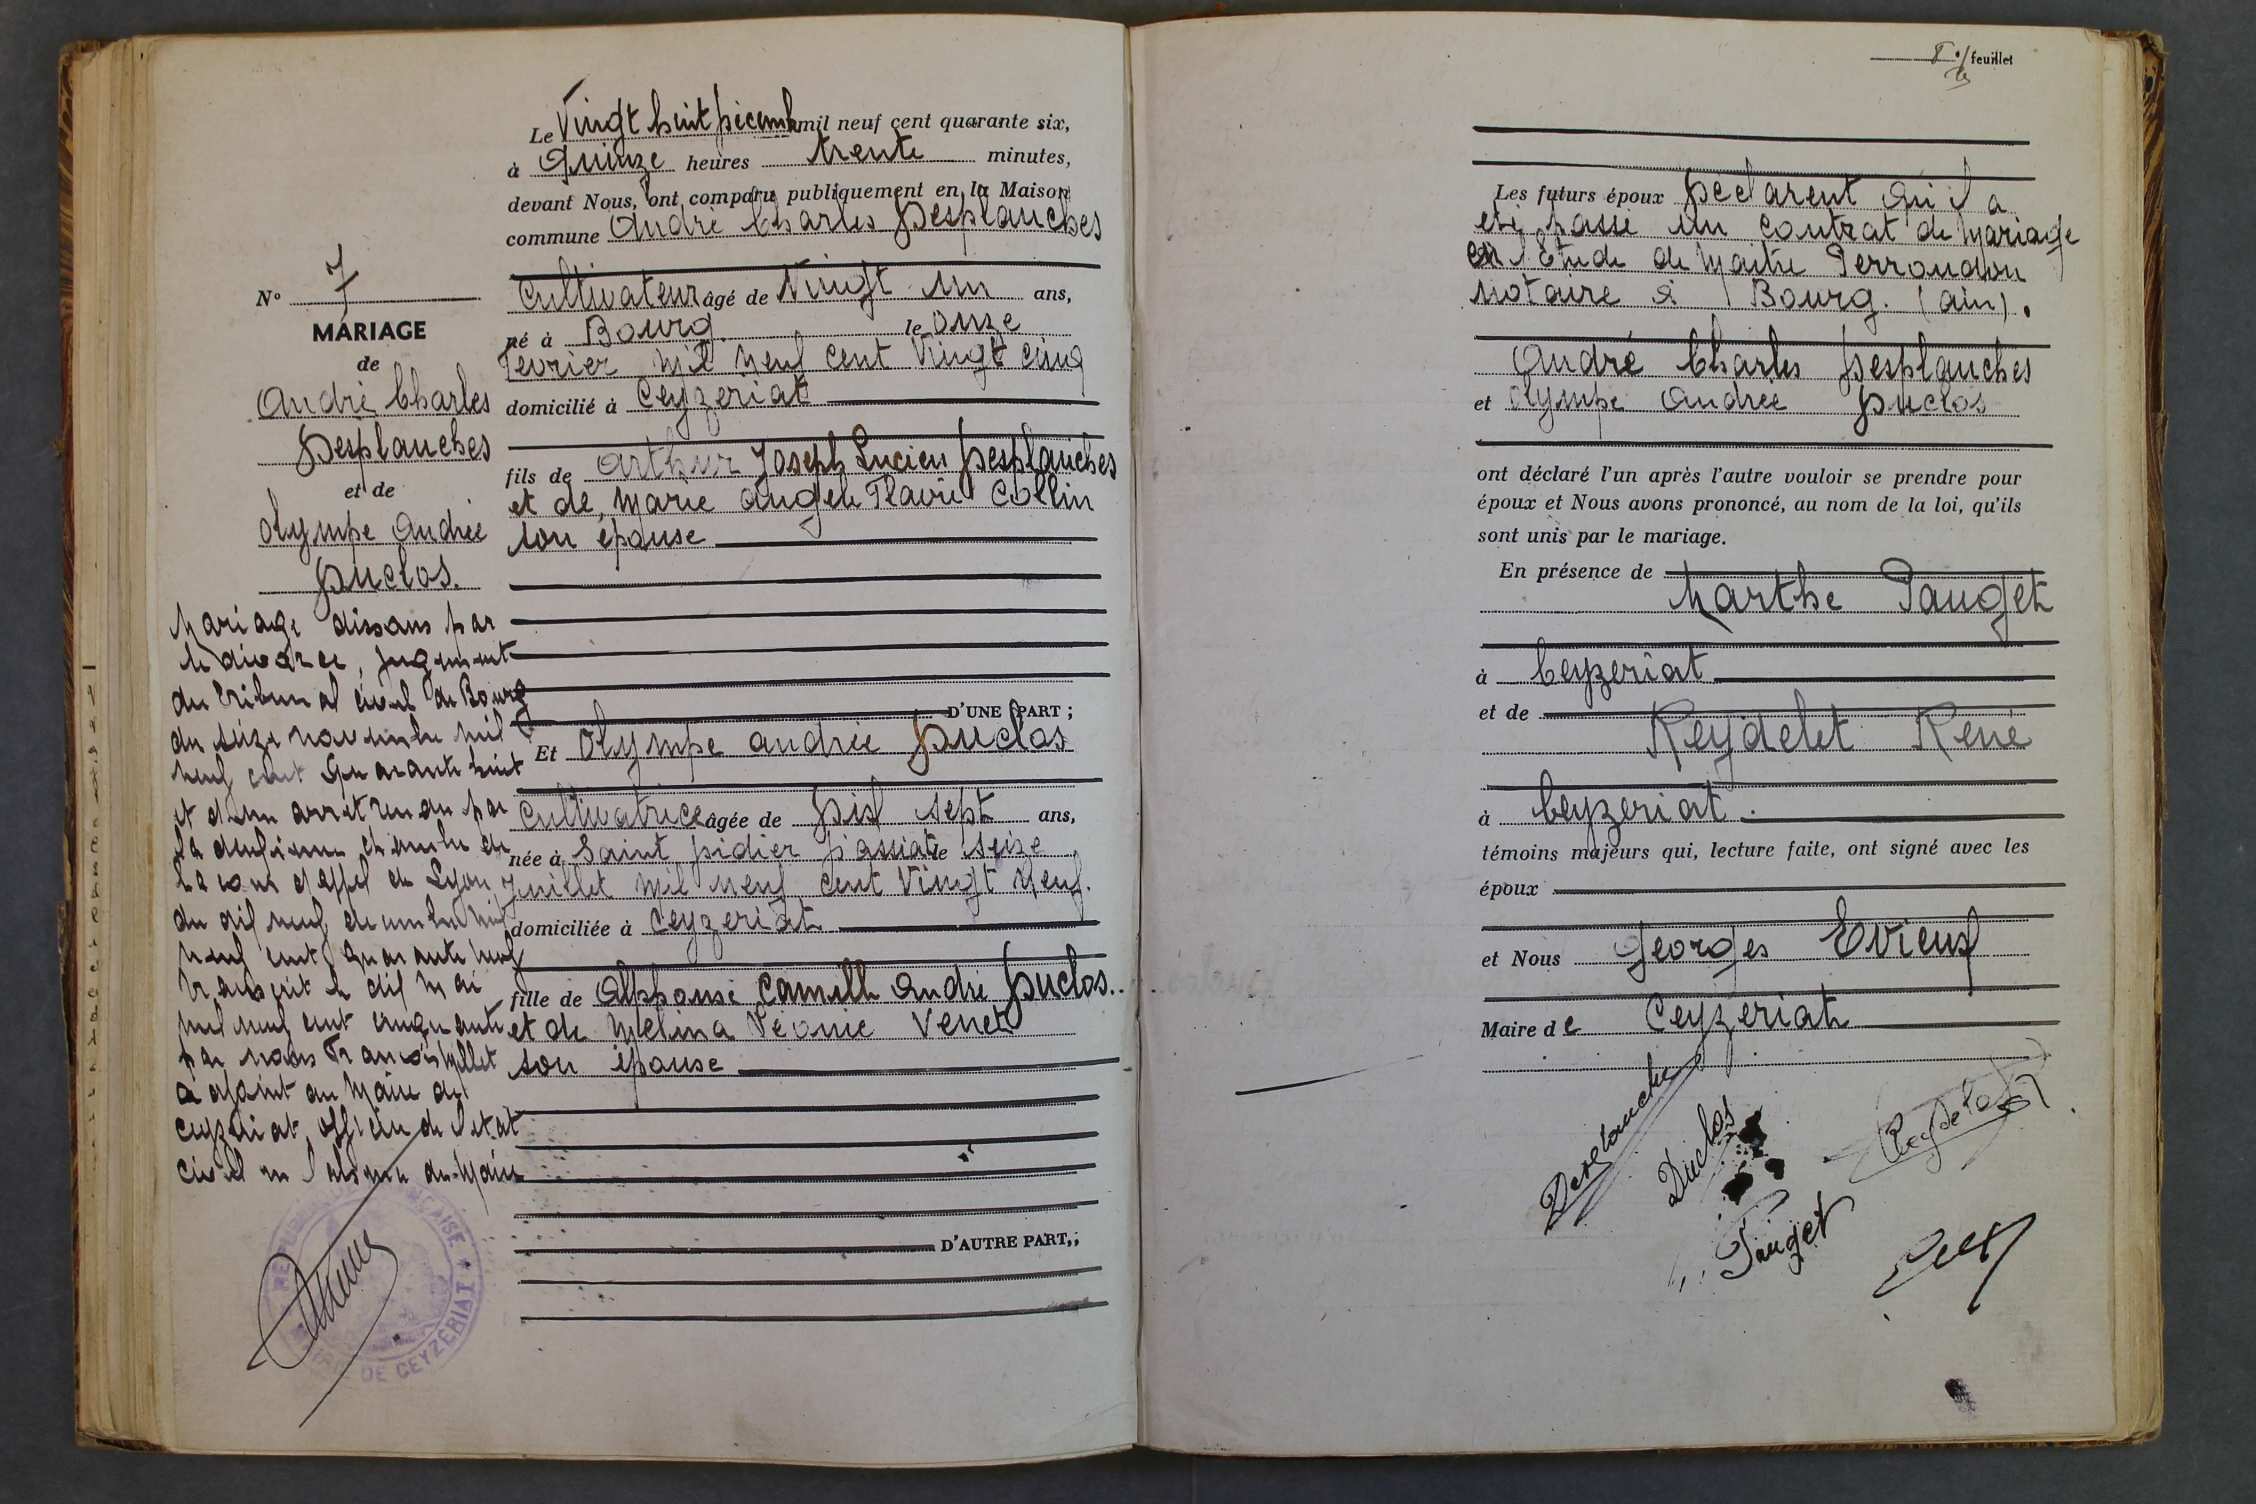 N° 7
MARIAGE
de
André Charles
Desplanches
et de
Olympe Andrée
Duclos.
Mariage dissous par
le divorce, jugement
du Tribunal civil de Bourg
du seize novembre mil
neuf cent quarante huit
et d'un arrêt rendu par
la deuxième chambre de
la cour d'appel de Lyon
du dix neuf décembre mil
neuf cent quarante neuf
transcrit le dix mai
mil neuf cent cinquante
par nous François Millet
adjoint au Maire de
Ceyzériat officier de l'état
civil en l'absence du Maire
REPUBLIQUE FRANÇAISE
MAIRIE DE CEYZERIAT
Le Vingt huit Décembre mil neuf cent quarante six,
à Quinze heures trente minutes,
devant Nous, ont comparu publiquement en la Maison
commune André Charles Desplanches
Cultivateur âgé de Vingt un ans,
né à Bourg le onze
Février mil neuf cent Vingt cinq
domicilié à Ceyzeriat
fils de Arthur Joseph Lucien Desplanches
et de Marie Angèle Flavie Collin
son épouse
D'UNE PART ;
Et Olympe Andrée Duclos
Cultivatrice âgée de Dix sept ans,
née à Saint Didier d'assiat le seize
Juillet mil neuf cent Vingt neuf.
domiciliée à Ceyzeriat
fille de Alphonse Camille André Duclos.
et de Mélina Léonie Venet
son épouse
D'AUTRE PART,;
feuillet
Les futurs époux Déclarent qu'il a
été passé un contrat de mariage
en l'Etude de Maître Perroudon
notaire à Bourg. (ain).
André Charles Desplanches
et Olympe Andrée Duclos
ont déclaré l'un après l'autre vouloir se prendre pour
époux et Nous avons prononcé, au nom de la loi, qu'ils
sont unis par le mariage.
En présence de
Marthe Pauget
à Ceyzeriat
et de
Reydelet René
à Ceyzeriat.
témoins majeurs qui, lecture faite, ont signé avec les
époux
et Nous Georges Evieux
Maire de Ceyzeriat
Desplanches
Duclos
Reydelet
Pauget